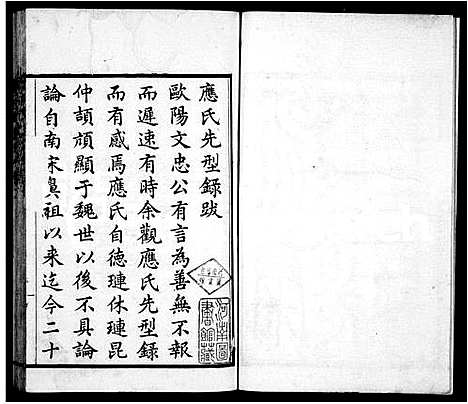 應氏先型錄跋
歐陽文忠公有言為善無不報
而遲速有時余觀應氏先型錄
而有感焉應氏自德璉休璉昆
仲頡頏顯于魏世以後不具論
論自南宋㒷祖以来迄今二十
河南圖
書館藏